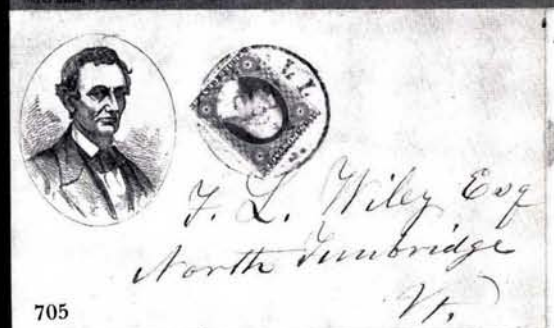 F. L. Wiley Esq
North Tunbridge
Vt.
705